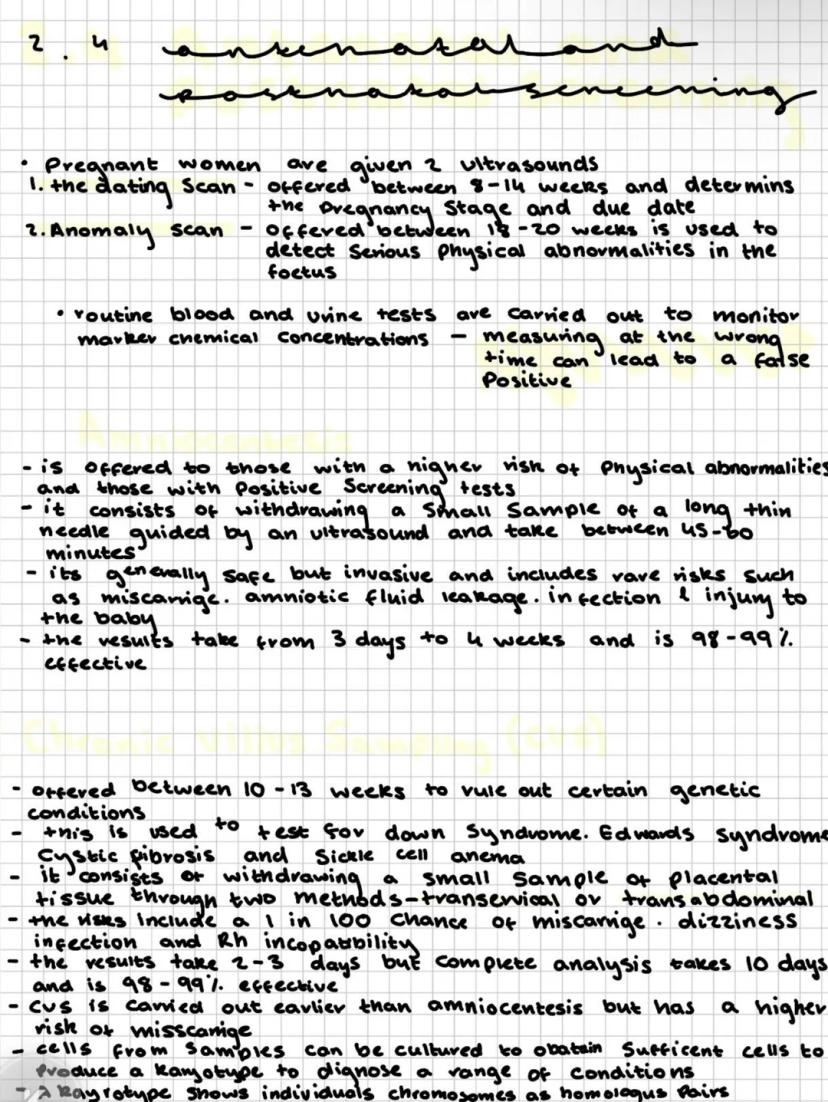 2.4 antenatal and
postnatal screening
• Pregnant women are given 2 ultrasounds
1. the dating scan - offered between 8-14 weeks and determins
the pregnancy stage and due date
2. Anomaly scan - offered between 18-20 weeks is used to
detect serious physical abnormalities in the
foetus
• routine blood and urine tests are carried out to monitor
marker chemical concentrations - measuring at the wrong
time can lead to a false
positive
Amniocentesis
- is offered to those with a higher risk of physical abnormalities
and those with positive screening tests
- it consists of withdrawing a small sample of a long thin
needle guided by an ultrasound and take between 45-60
minutes
- its generally safe but invasive and includes rare risks such
as miscarrige. amniotic fluid leakage. infection & injury to
the baby
- the results take from 3 days to 4 weeks and is 98-99%
effective
Chronic villus Sampling (CVS)
- offered between 10-13 weeks to rule out certain genetic
conditions
- this is used to test for down syndrome. Edwards syndrome
cystic fibrosis and sickle cell anema
- it consists of withdrawing a small sample of placental
tissue through two methods - transervical or transabdominal
- the risks include a 1 in 100 chance of miscarrige. dizziness
infection and Rh incopatibility
- the results take 2-3 days but complete analysis takes 10 days
and is 98-99% effective
- CVS is carried out earlier than amniocentesis but has a higher
risk of misscarrige
- cells from samples can be cultured to obatain sufficent cells to
produce a karyotype to dignose a range of conditions
- a kayrotype shows individuals chromosomes as homologus pairs